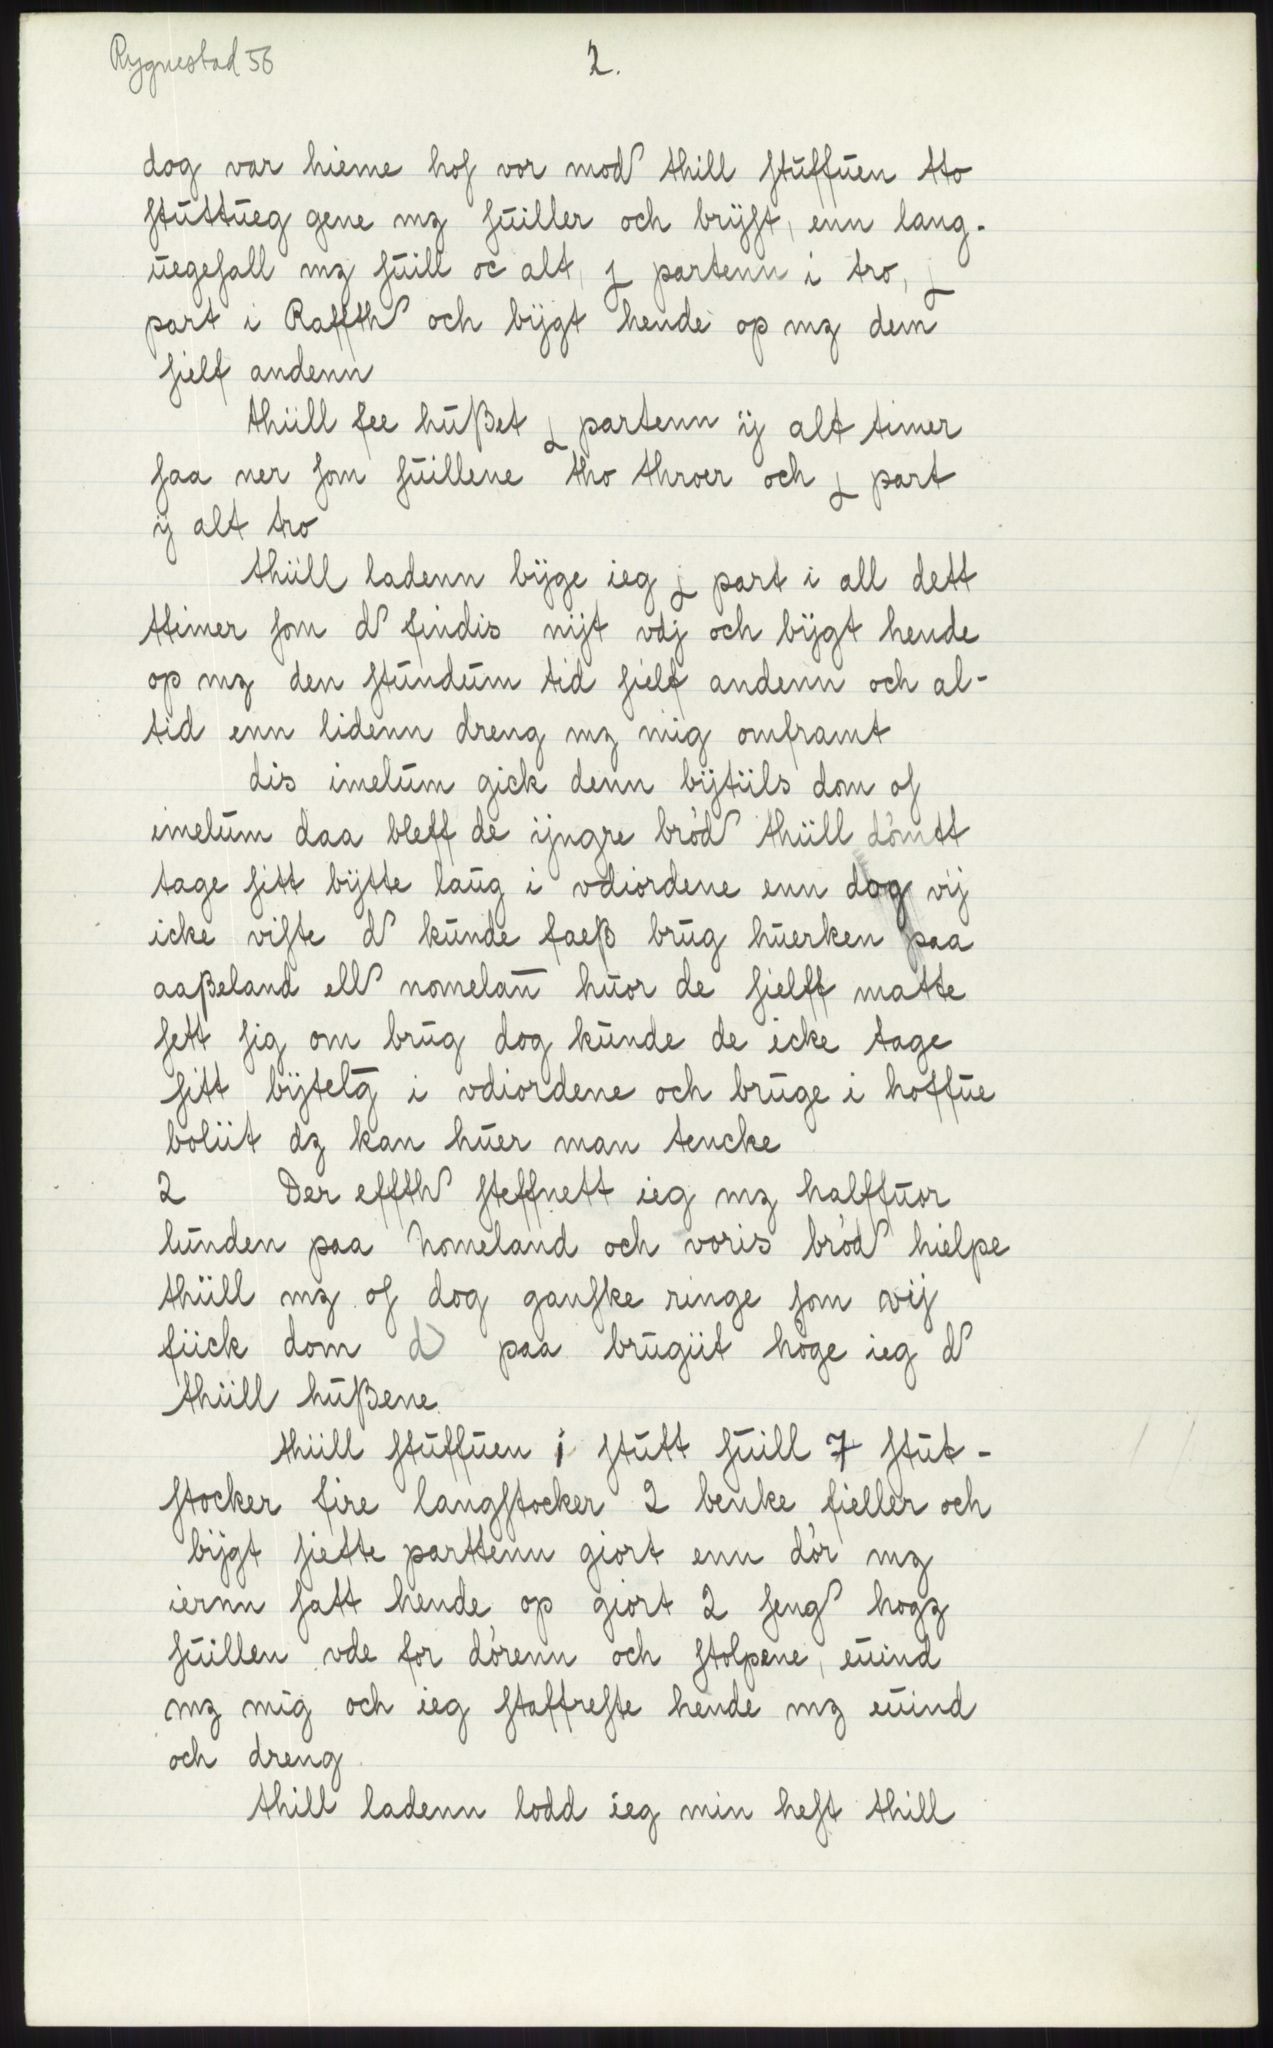 Rygnestad 56
2.
dog var hieme hos vor mod thill stuffuen tto
stuttueg gene mz suiller och bryst, enn lang-
uegesall mz suill oc alt, j partenn i tro, j
part i Raffth och bÿgt hende op mz dem
sielf andenn
thiill fee hußet j partenn ij alt timer
saa ner som suillene tho throer och j part
ij alt tro
thiill ladenn bÿge ieg j part i all dett
ttimer som d findis nijt vdj och bÿgt hende
op mz den stundum tid sielf andenn och al-
tid enn lidenn dreng mz mig omframt
dis imelum gick denn bÿtiils dom of
imelum daa bleff de ÿngre bród thiill dómtt
tage sitt bÿtte laug i vdiordene enn dog vij
icke viste d kunde faeß brug huerken paa
aaßeland ell nomelan huor de sielff matte
sett sig om brug dog kunde de icke tage
sitt bÿtelg i vdiordene och bruge i hoffue
boliit dz kan huer man tencke
2 Der effth steffnett ieg mz halffuor
lunden paa homeland och voris bród hielpe
thiill mz of dog ganske ringe som vij
fiick dom d paa brugiit hóge ieg d
thiill hußene
thiill stuffuen i stutt suill 7 stut-
stocker fire langstocker 2 benke fieller och
bÿgt siette parttenn giort enn dór mz
iernn satt hende op giort 2 seng hogz
suillen vde for dórenn och stolpene, euind
mz mig och ieg staffreste hende mz euind
och dreng
thill ladenn lodd ieg min hest thill